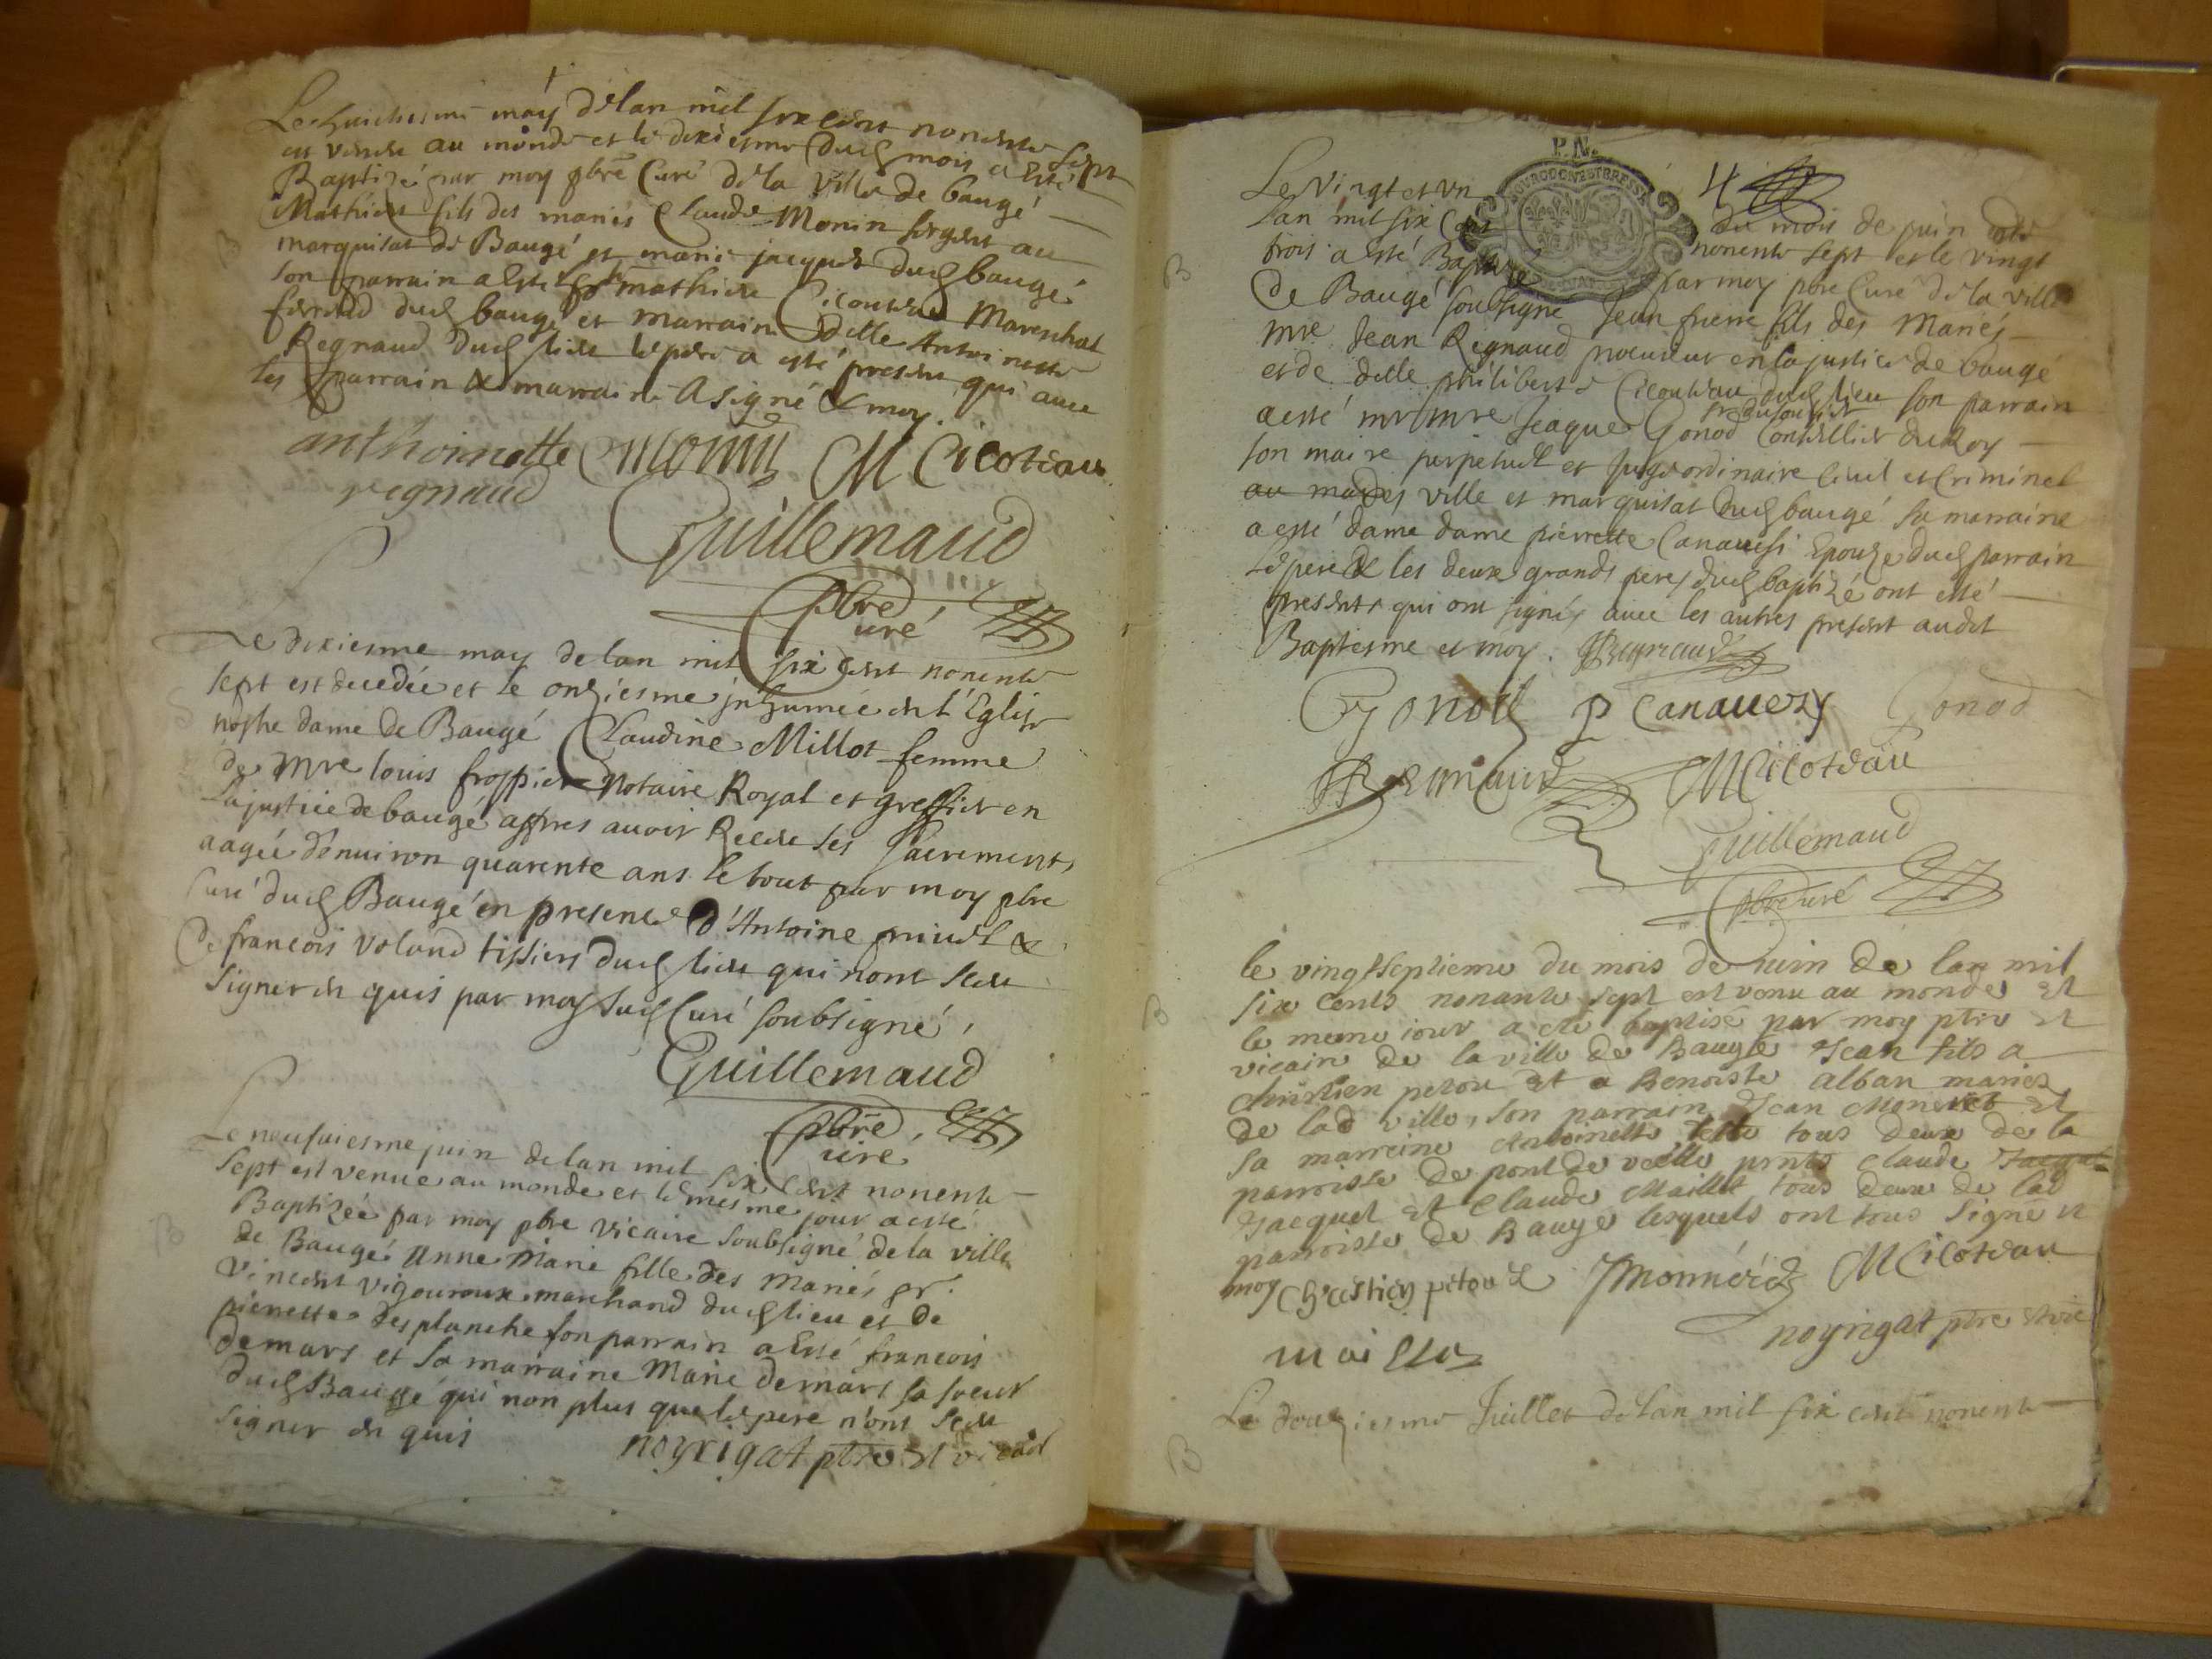 Le huictiesme may de lan mil six cent nonente sept
est venue au monde et le dixiesme dud mois a esté
Baptizé par moy pbre Curé de la ville de baugé
Mathieu fils des mariés Claude Monin sergent au
marquisat de Baugé et marie jacquet dud baugé
son parrain a esté Sr mathieu Cicoteau Mareschal
ferrand dud baugé et marraine delle Antoinette
Regnaud dud lieu le pere a esté present qui avec
les parrain & marraine A signé & moy.
anthoinette Monin M Cicoteau
regnaud
Guillemaud
pbre
curé
Le dixiesme may de lan mil six cent nonente
sept est decedée et le onziesme inhumée en l'Eglise
nostre dame de Baugé Claudine Millot femme
de Mre louis frossier Notaire Royal et greffier en
la justice de baugé appres avoir Receu ses Sacrements
aagée d'environ quarente ans le tout par moy pbre
Curé dud Baugé en presence d'Antoine
de francois voland tissiers dud lieu qui nont sceu
signer en quis par moy sud Curé soubsigné,
Guillemaud
pbre,
curé
Le neufuiesme juin de lan mil six cent nonente
sept est venue au monde et le mesme jour a esté
Baptizée par moy pbre vicaire soubsigné de la ville
de Baugé Anne Marie fille des Mariés sr.
Vincent vigouroux marchand dud lieu et de
pierrette desplanche son parrain a Esté francois
demars et sa marraine Marie demars sa soeur
dud Baugé qui non plus que le pere n'ont sceu
signer en quis
noyrigat pbre et vicair
P.N.
BOURGOGNE ET BRESSE
4
Le Vingt et vn du mois de juin de
Lan mil six Cens nonente sept et le vingt
trois a esté Baptizé par moy pbre Curé de la ville
de Baugé soubsigné Jean pierre fils des Mariés
Mre Jean Regnaud procureur en la justice de baugé
et de delle philiberte Cicouteau dud lieu son parrain
a esté mr mre Jeaque Gonod Conseillier du Roy
son maire perpetuel et Juge ordinaire Civil et Criminel
au mardes ville et marquisat dud baugé sa marraine
a esté dame dame pierrette Canavesi Epouze dud parrain
Le pere & les deux grands peres dud baptizé ont esté
presents qui ont signés avec les autres present audit
Baptesme et moy. Regnaud
Gonod P Canauezy Gonod
Regnaud M Cicoteau
Guillemaud
pbre curé
le vingtseptieme du mois de iuin de lan mil
six cents nonante sept est venu au monde et
le meme iour a eté baptisé par moy ptre et
vicaire de la ville de Baugé Jean fils a
christien petou et a Benoiste alban mariés
de lad ville, son parrain Jean Moneret et
sa marreine Antoinette tous deux de la
parroisse de pont de veille pnts claude Jacquet
Jacquet et Claude Maillet tous deux de lad
parroisse de Baugé lesquels ont tous signé et
moy Christien petou Jmonnéret M Cicoteau
noyrigat ptre et vic
maillet
Le douziesme Juillet de lan mil six cent nonente